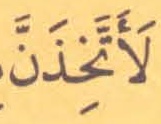 لَأَتَّخِذَنَّ